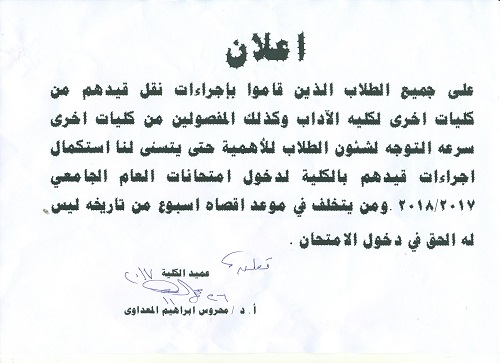 اعلان
على جميع الطلاب الذين قاموا بإجراءات نقل قيدهم من
كليات اخرى لكليه الآداب وكذلك المفصولين من كليات اخرى
سرعه التوجه لشئون الطلاب للأهمية حتى يتسنى لنا استكمال
اجراءات قيدهم بالكلية لدخول امتحانات العام الجامعي
٢٠١٨/٢٠١٧ .ومن يتخلف في موعد اقصاه اسبوع من تاريخه ليس
له الحق في دخول الامتحان .
عميد الكلية
٢٠١٧
٢٦
١١
أ . د / محروس ابراهيم المعداوى